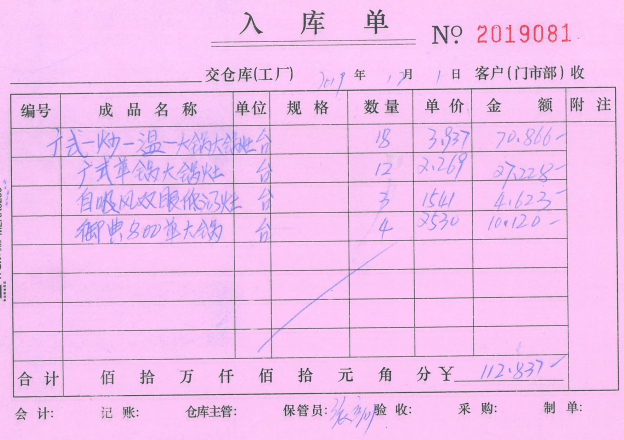 入库单 № 2019081
交仓库(工厂) 2019年1月1日 客户(门市部)收
编号 成品名称 单位 规格 数量 单价 金额 附注
广式一炒一温一大锅大锅灶 台 18 3.937 70.866
广式单锅大锅灶 台 12 2.269 27.228
自吸风双眼低汤灶 台 3 1541 4.623
御典800单大锅 台 4 2530 10.120
合计 佰拾万仟佰拾元角分¥ 112.837
会计: 记账: 仓库主管: 保管员: 验收: 采购: 制单: